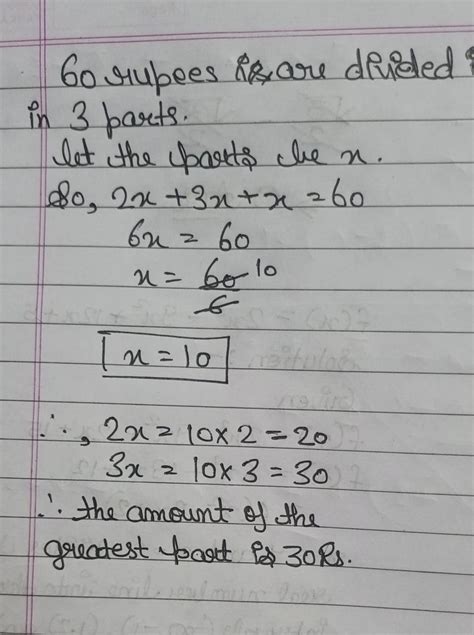 60 rupees are divided
in 3 parts.
let the parts be x.
So, 2x + 3x + x = 60
6x = 60
x = 60 10
6
x = 10
∴, 2x = 10 × 2 = 20
3x = 10 × 3 = 30
∴ the amount of the
greatest part is 30Rs.